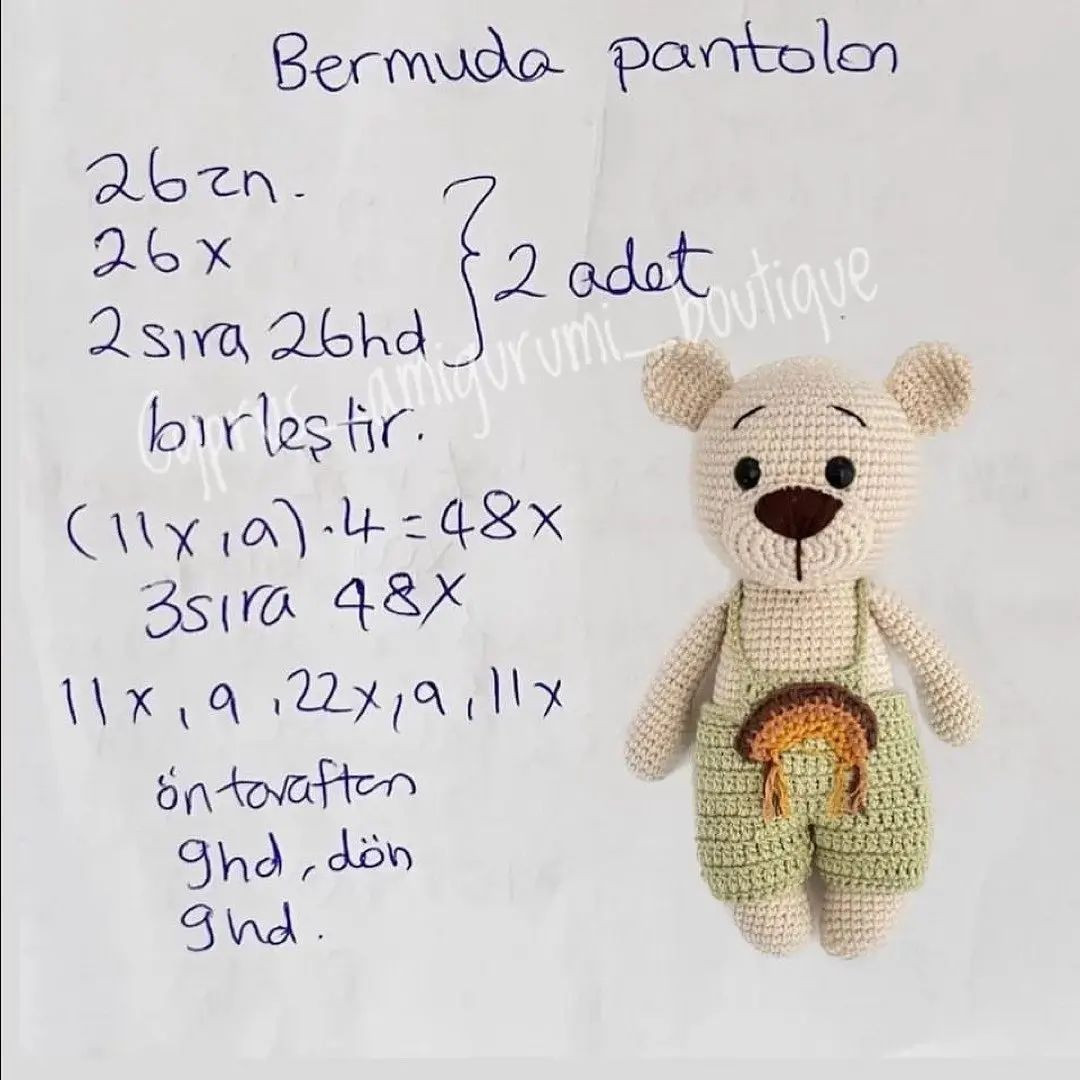 Bermuda pantolon
26zn.
26x
2sıra 26hd
} 2 adet
bırleştir.
(11x,a).4=48x
3sıra 48x
11x,a,22x,a,11x
ön taraftan
9hd, dön
9hd.
Cyprus_amigurumi_boutique